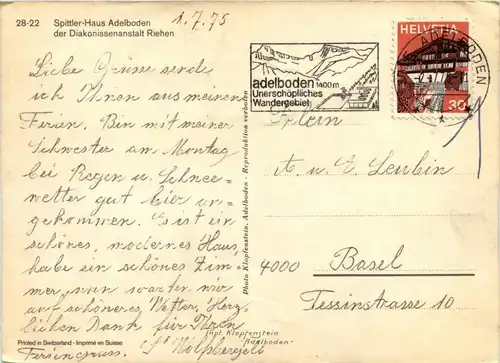 28-22 Spittler-Haus Adelboden
der Diakonissenanstalt Riehen
1.7.75
Liebe Grüsse sende
ich Ihnen aus meinen
Ferien. Bin mit meiner
Schwester am Montag
bei Regen u. Schnee=
wetter gut hier an=
gekommen. Es ist ein
schönes, modernes Haus,
habe ein schönes Zim=
mer, nun warten wir
auf schöneres Wetter, Herz=
lichen Dank für Ihren
Feriengruss.
Printed in Switzerland - Imprimé en Suisse
Photo Klopfenstein, Adelboden - Reproduktion verboten
adelboden 1400m
Unerschöpfliches
Wandergebiet
HELVETIA
30
ADELBODEN
A. u. E. Leubin
4000 Basel
Tessinstrasse 10
phot. Klopfenstein
Adelboden